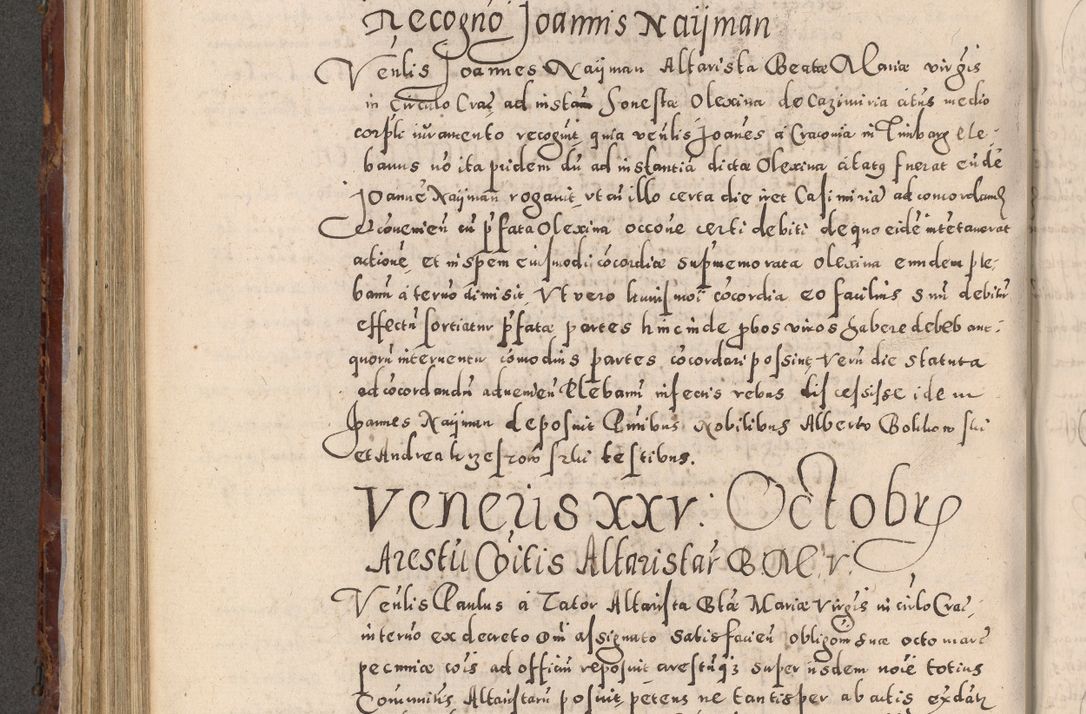 Recogno Joannis Naÿman
Venlis Joannes Naÿman Altarista Beatæ Mariæ virgis
in Circulo Crac ad instan honestæ Olexina de Cazimiria citus medio
corpli iuramento recognit, quia venlis Joanes a Craconia in Timbarg ple-
banus no ita pridem du ad instantia dictæ Olexina citatq fuerat eude
Joanne Naÿman rogauit, vt cu illo certa die iret Casimiria ad concordand
et conuenien cu pfata Olexina occone certi debiti de quo eide intetauerat
actione, et in spem eiusmodi cocordiæ supmemorata Olexina eundem ple-
banu a termo dimisit, Vt vero huiusmoi cocordia eo facilius suu debitu
effectu sortiatur pfatæ partes hincinde pbos viros habere debebant-
quoru interuentu comodius partes cocordari possint, Veru die statuta
ad cocordandu aduenien Plebanu infectis rebus discessisse idem
Joannes Naÿman deposuit Pntibus Nobilibus Alberto Bolihowski
et Andrea krzestowski testibus.
Veneris XXV: Octobr
Arestu Coitis Altaristar B M V.
Venlis Paulus a Tator Altarista Btæ Mariæ Virgis in cirlo Crac,
in termo ex decreto Dni assignato satisfacien obligom suæ octo marc
pecuniæ cois ad officiu reposuit arestuiqz super iisdem noie totius
Comunitis Altaristaru posuit petens ne tantisper ab actis exdat